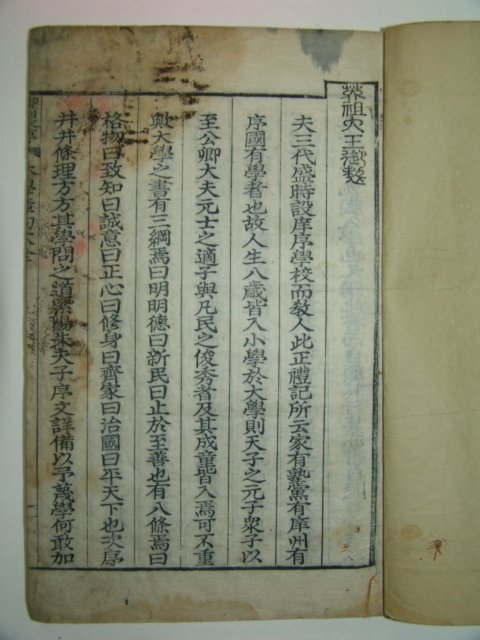 英祖大王御製
夫三代盛時設庠序學校而敎人此正禮記所云家有塾黨有庠州有
序國有學者也故人生八歲皆入小學於大學則天子之元子衆子以
至公卿大夫元士之適子與凡民之俊秀者及其成童皆入焉可不重
歟大學之書有三綱焉曰明明德曰新民曰止於至善也有八條焉曰
格物曰致知曰誠意曰正心曰修身曰齊家曰治國曰平天下也次序
井井條理方方其學問之道紫陽朱夫子序文詳備以予蔑學何敢加